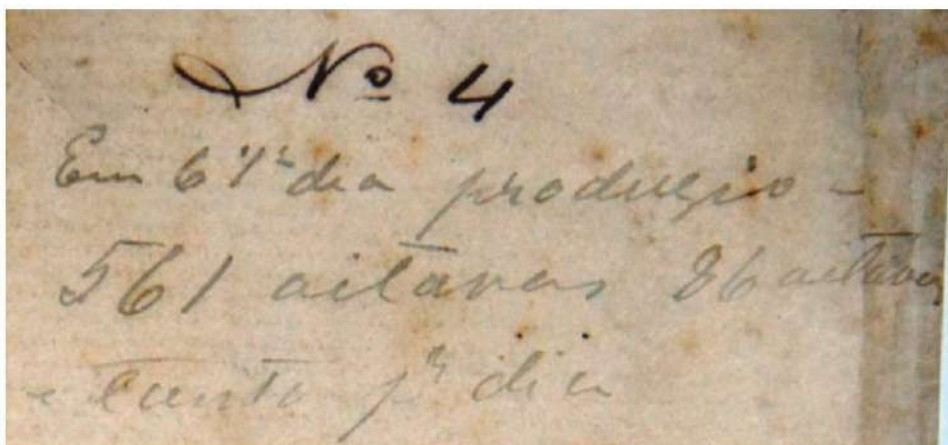 Nº 4
Em 6 ½ dia producção -
561 oitavas 86 oitavas
e tanto pr dia